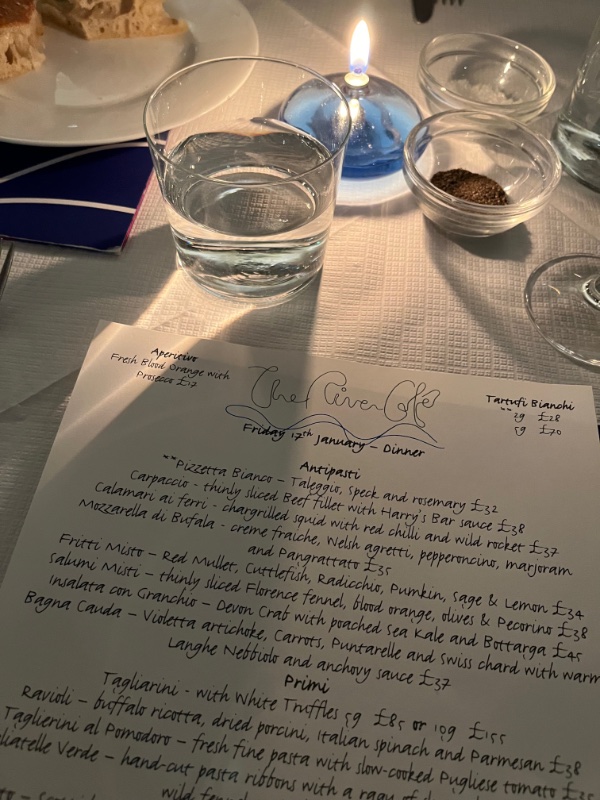 Aperitivo
Fresh Blood Orange with
Prosecco £17
The River Cafe
Friday 17th January – Dinner
Tartufi Bianchi
**2g £28
5g £70
Antipasti
**Pizzetta Bianco – Taleggio, Speck and rosemary £32
Carpaccio - thinly sliced Beef fillet with Harry's Bar sauce £38
Calamari ai ferri - chargrilled squid with red chilli and wild rocket £37
Mozzarella di Bufala - creme fraiche, Welsh agretti, pepperoncino, marjoram
and Pangrattato £35
Fritti Misto – Red Mullet, Cuttlefish, Radicchio, Pumkin, Sage & Lemon £34
Salumi Misti – thinly sliced Florence fennel, blood orange, olives & Pecorino £38
Insalata con Granchio – Devon Crab with poached Sea Kale and Bottarga £45
Bagna Cauda – Violetta artichoke, Carrots, Puntarelle and Swiss chard with warm
Langhe Nebbiolo and anchovy sauce £37
Primi
Tagliarini - with White Truffles 5g £85 or 10g £155
Ravioli – buffalo ricotta, dried porcini, Italian spinach and Parmesan £38
Taglierini al Pomodoro – fresh fine pasta with slow-cooked Pugliese tomato
Verde – hand-cut pasta ribbons with a ragu of
wild